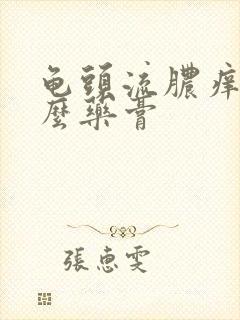 龟頭流膿痒
麼藥膏
張惠雯